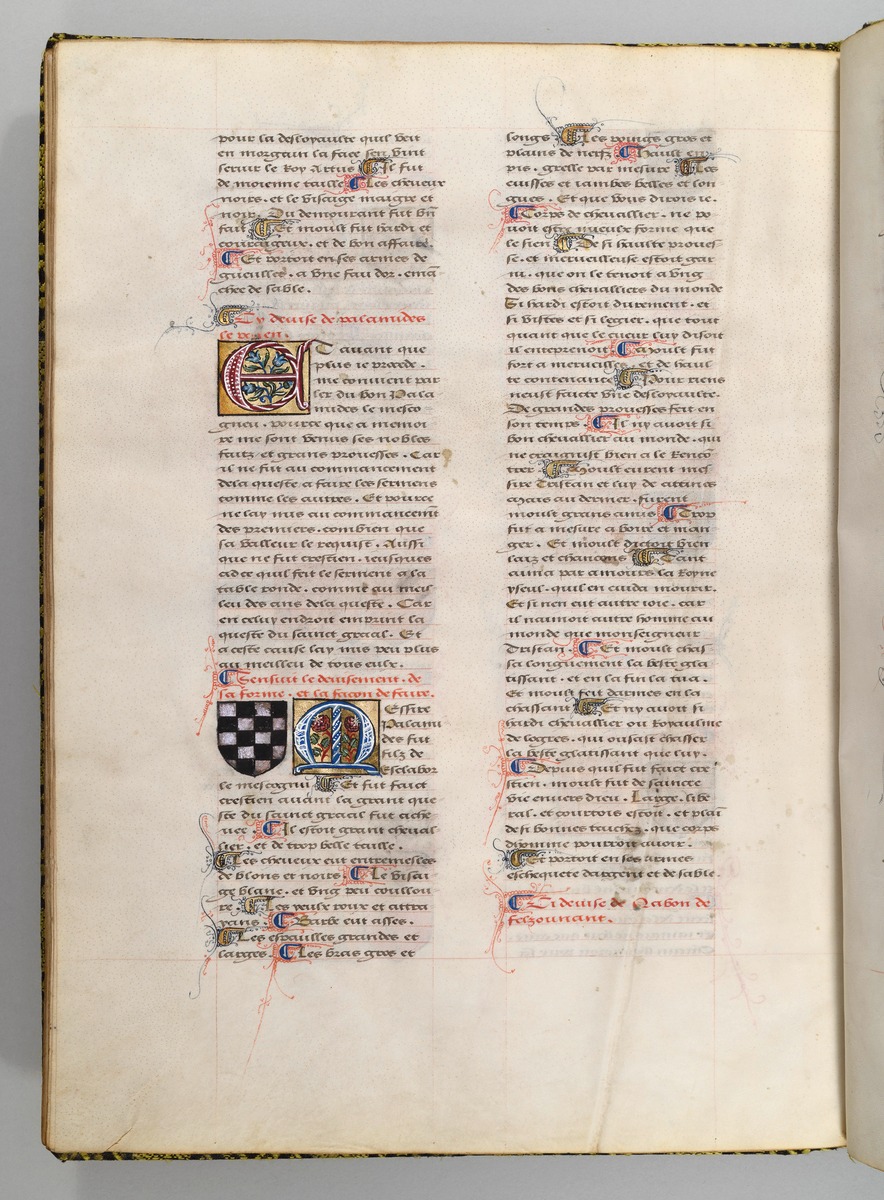 pour la desloyaulte quil veit
en morgain la faee sen vint
seruir le Roy Artus Il fut
de moienne taille Les cheveux
noirs. et le visaige maigre et
noir. Du demourant fut bñ
fait Et moult fut hardi et
couraigeux. et de bon affaire.
Et portoit en ses armes de
gueulles. a vne fau dor. emã
chee de sable.
Cy devise de palamides
le payen.
Et avant que
plus ie procede.
me convient par
ler du bon Pala
mides le mesco
gneu. pource que a memoi
re me sont venus ses nobles
faitz et grans prouesses. Car
il ne fut au commancement
dela queste a faire les sermens
comme les autres. Et pource
ne lay mis au commancemẽt
des premiers. combien que
sa valleur le requist. Aussi
que ne fut crestien. iusques
ad ce quil feit le serment a la
table ronde. comme au meil
leu des ans dela queste. Car
en celuy endroit emprint la
queste du sainct graal. Et
a ceste cause lay mis peu plus
au meilleu de tous eulx.
Sensuit le devisement de
sa forme. et la facon de faire.
Messire
Palami
des fut
filz de
Esclabor
le mescogniu Et fut faict
crestien avant la grant que
ste du sainct graal fut ache
vee. Il estoit grant cheval
lier. et de trop belle taille.
Les cheveux eut entremesles
de blons et noirs. Le visai
ge blanc. et vng peu coullou
re Les yeulx roux et attra
yans. Barbe eut asses.
Les espaulles grandes et
larges. Les bras gros et
longs Les poings gros et
plains de nerfz Hault
pis. gresle par mesure Les
cuisses et iambes belles et lon
gues. Et que vous dirois ie.
Corps de chevallier. ne po
uoit estre mieulx forme que
le sien De si haulte proues
se. et merveilleuse estoit gar
ni. que on le tenoit a vng
des bons chevalliers du monde
Si hardi estoit durement. et
si vistes et si legier. que tout
quant que le cueur luy disoit
il entreprenoit Moult fut
fort a merveilles. et de haul
te contenance Pour riens
neust faicte vne desloyaulte.
De grandes prouesses feit en
son temps. Il ny avoit si
bon chevallier au monde. qui
ne craignist bien a le Rencõ
trer. Moult eurent mes
sire Tristan et luy de attines
Mais au dernier. furent
moult grans amis Trop
fut a mesure a boire et man
ger. Et moult dictoit bien
laiz et chancons Tant
aima par amours la Royne
yseul. quil en cuida mourir.
Et si nen eut autre ioie. car
il naimoit autre homme au
monde que monseigneur
Tristan. Et moult chas
sa longuement la beste gla
tissant. et en la fin la tua.
Et moult feit darmes en la
chassant Et ny avoit si
hardi chevallier ou Royaulme
de logres. qui ousast chasser
la beste glatissant que luy.
Depuis quil fut faict cre
stien. moult fut de saincte
vie envers dieu. Large. libe
ral. et courtois estoit. et plaĩ
de si bonnes taiches. que corps
dhomme pourroit avoir.
Et portoit en ses armes
eschequete dargent et de sable.
Ci devise de Nabon de
felzounant.